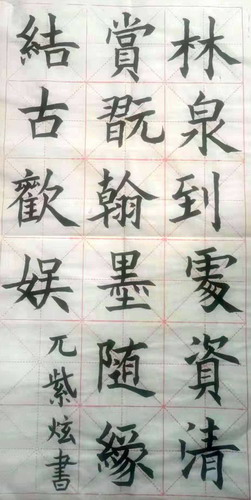 林泉到處資清
賞翫翰墨随緣
結古歡娱
兀紫炫書